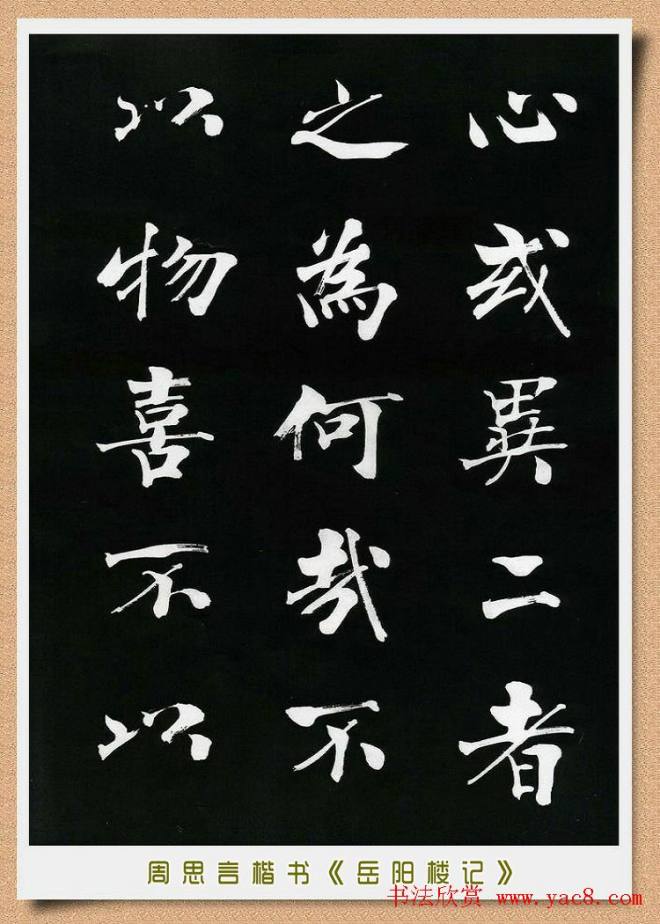 心或異二者
之為何哉不
以物喜不以
周思言楷书《岳阳楼记》
书法欣赏 www.yac8.com